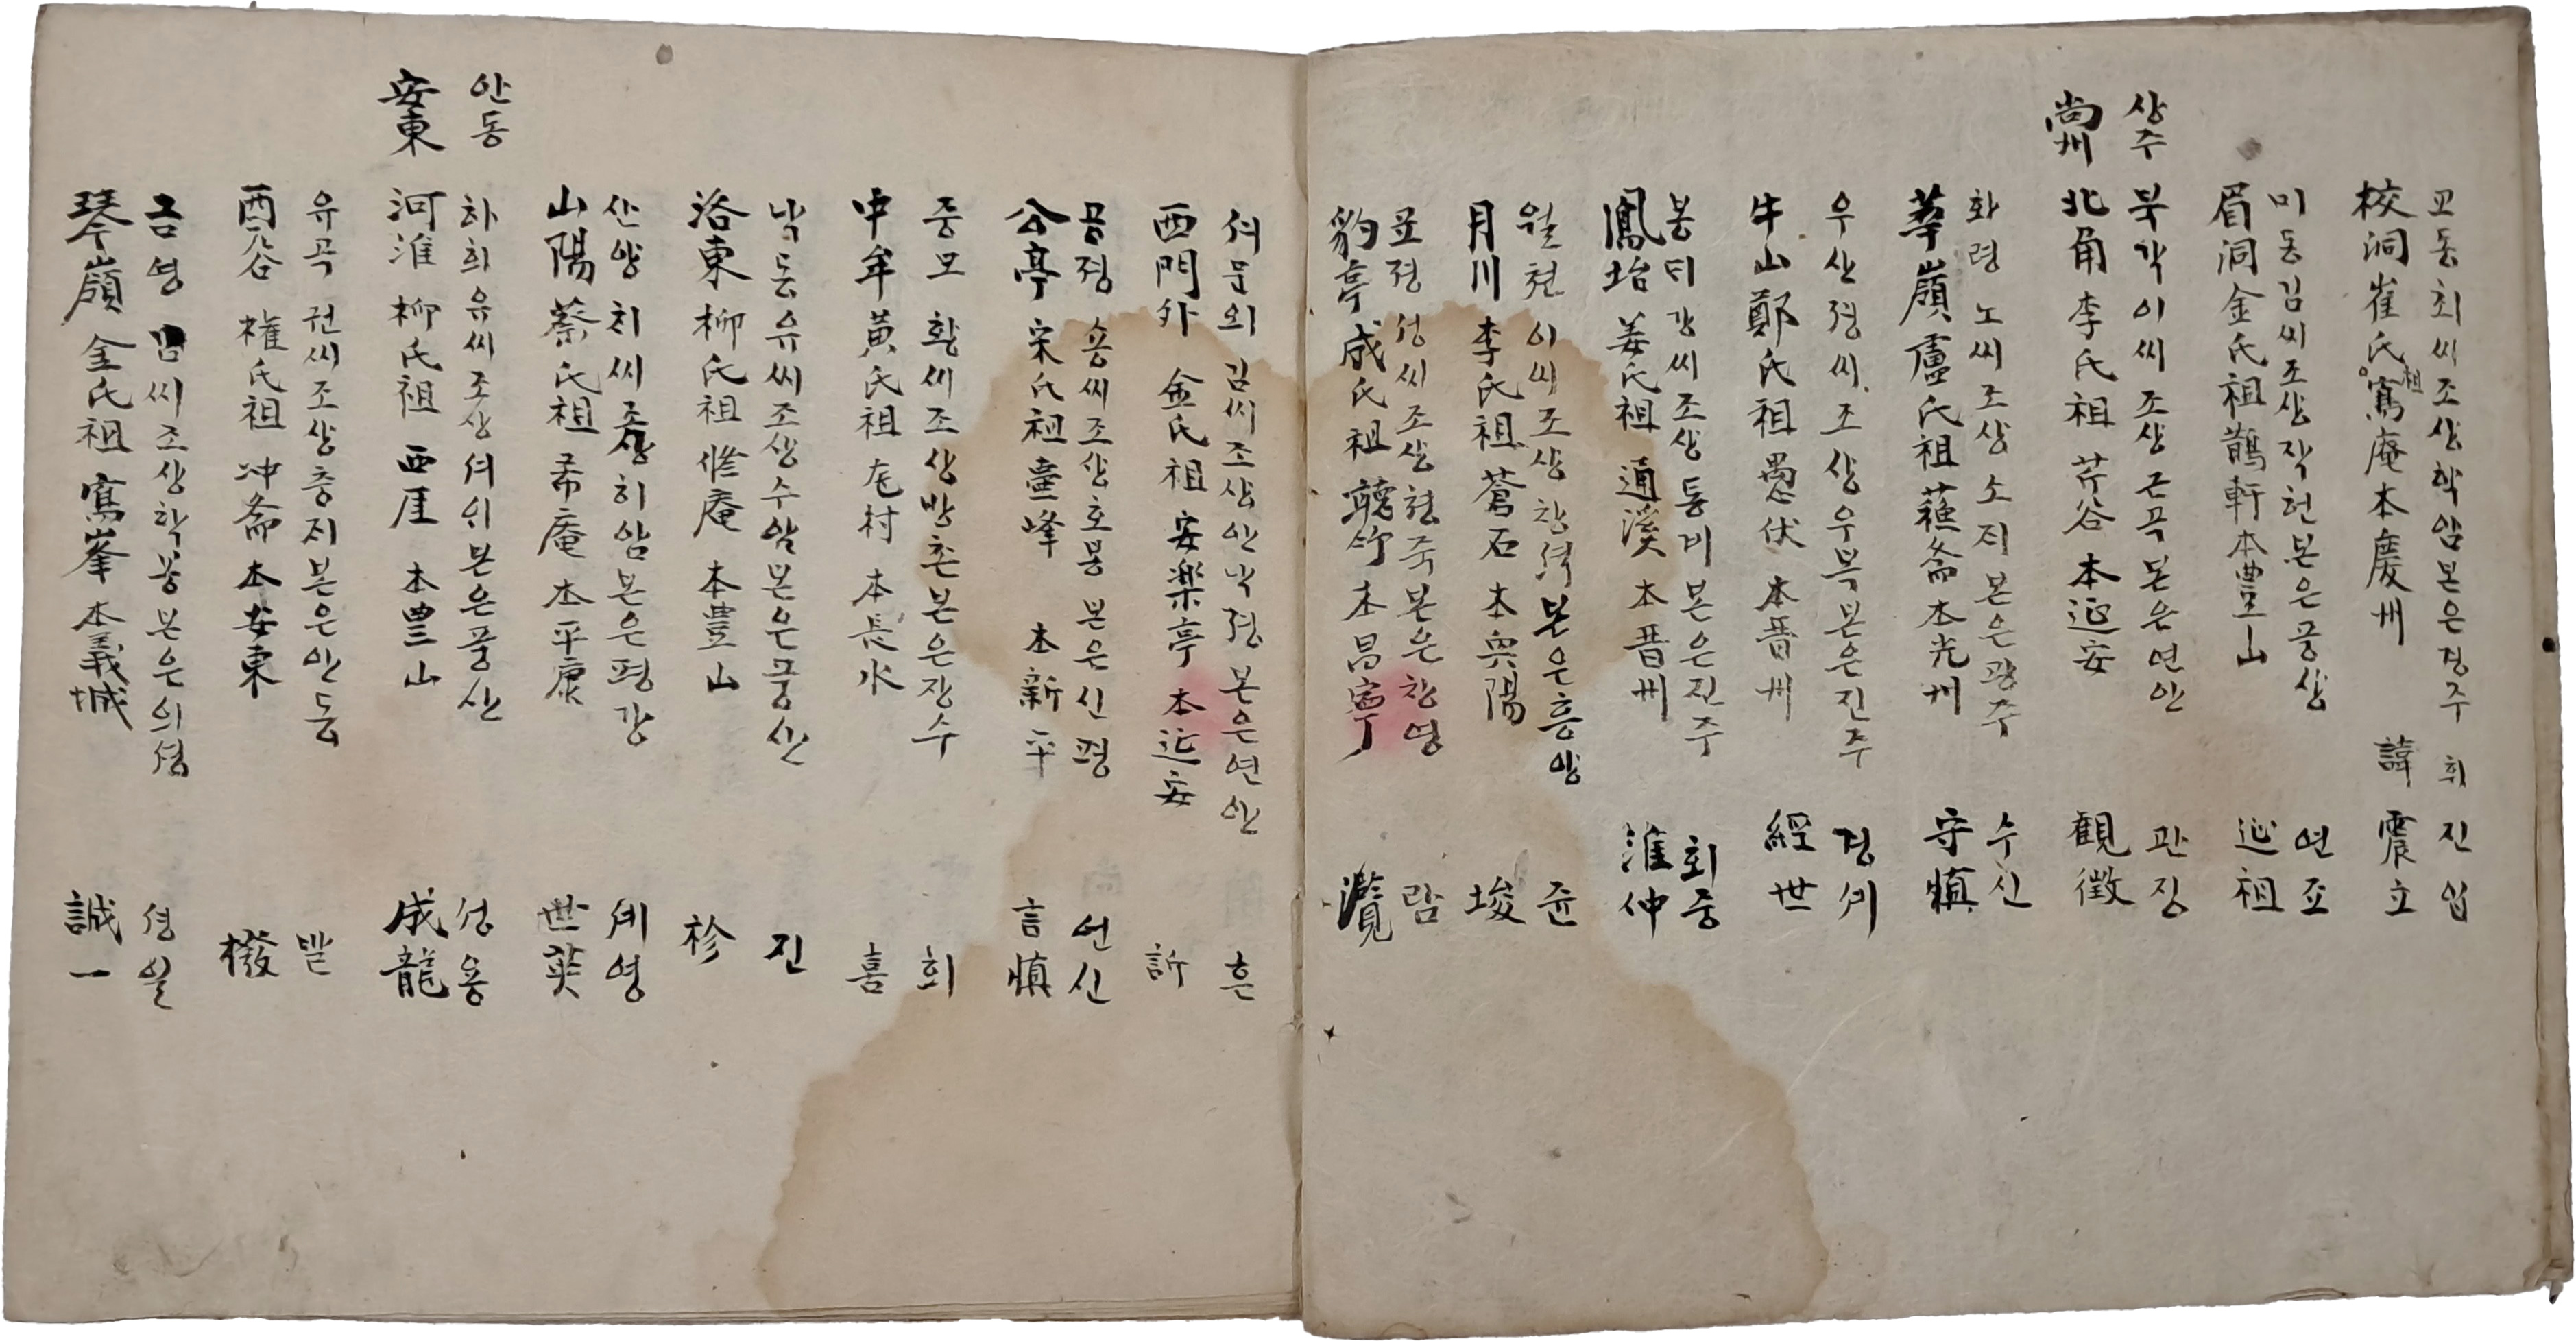 교동최씨조상학암본은경주 휘 진입
校洞崔氏祖寫庵本慶州 諱 震立
미동김씨조상작헌본은풍상 연조
眉洞金氏祖鵲軒本豊山 延祖
상주 북각이씨조상근곡본은연안 관징
尙州 北角李氏祖芹谷本延安 觀徵
화령노씨조상소지본은광주 수신
華嶺盧氏祖蘓斋本光州 守愼
우산졍씨조상우복본은진주 경셰
牛山鄭氏祖愚伏本晋州 經世
봉틔강씨조상통비본은진주 회중
鳳坮姜氏祖通溪本晋州 淮仲
월쳔이씨조상창셕본은흥양 쥰
月川李氏祖蒼石本興陽 埈
표졍셩씨조상쳥죽본은창영 람
豹亭成氏祖聽竹本昌寧 灠
셔문외김씨조상안낙졍본은연안 흔
西門外金氏祖安楽亭本延安 訢
공졍송씨조상호봉본은신평 언신
公亭宋氏祖壷峰本新平 言愼
중모황씨조상방촌본은장수 희
中牟黃氏祖厖村本長水 喜
낙동유씨조상수암본은풍산 진
洛東柳氏祖修庵本豊山 袗
산양치씨조상히암본은평강 셰영
山陽蔡氏祖希庵本平康 世英
안동 하희유씨조상셔익본은풍산 셩용
安東 河淮柳氏祖西厓本豊山 成龍
유곡권씨조상충지본은안동 발
酉谷權氏祖冲斋本安東 橃
금영김씨조상학봉본은의셩 셩일
琴嶺金氏祖寫峯本義城 誠一